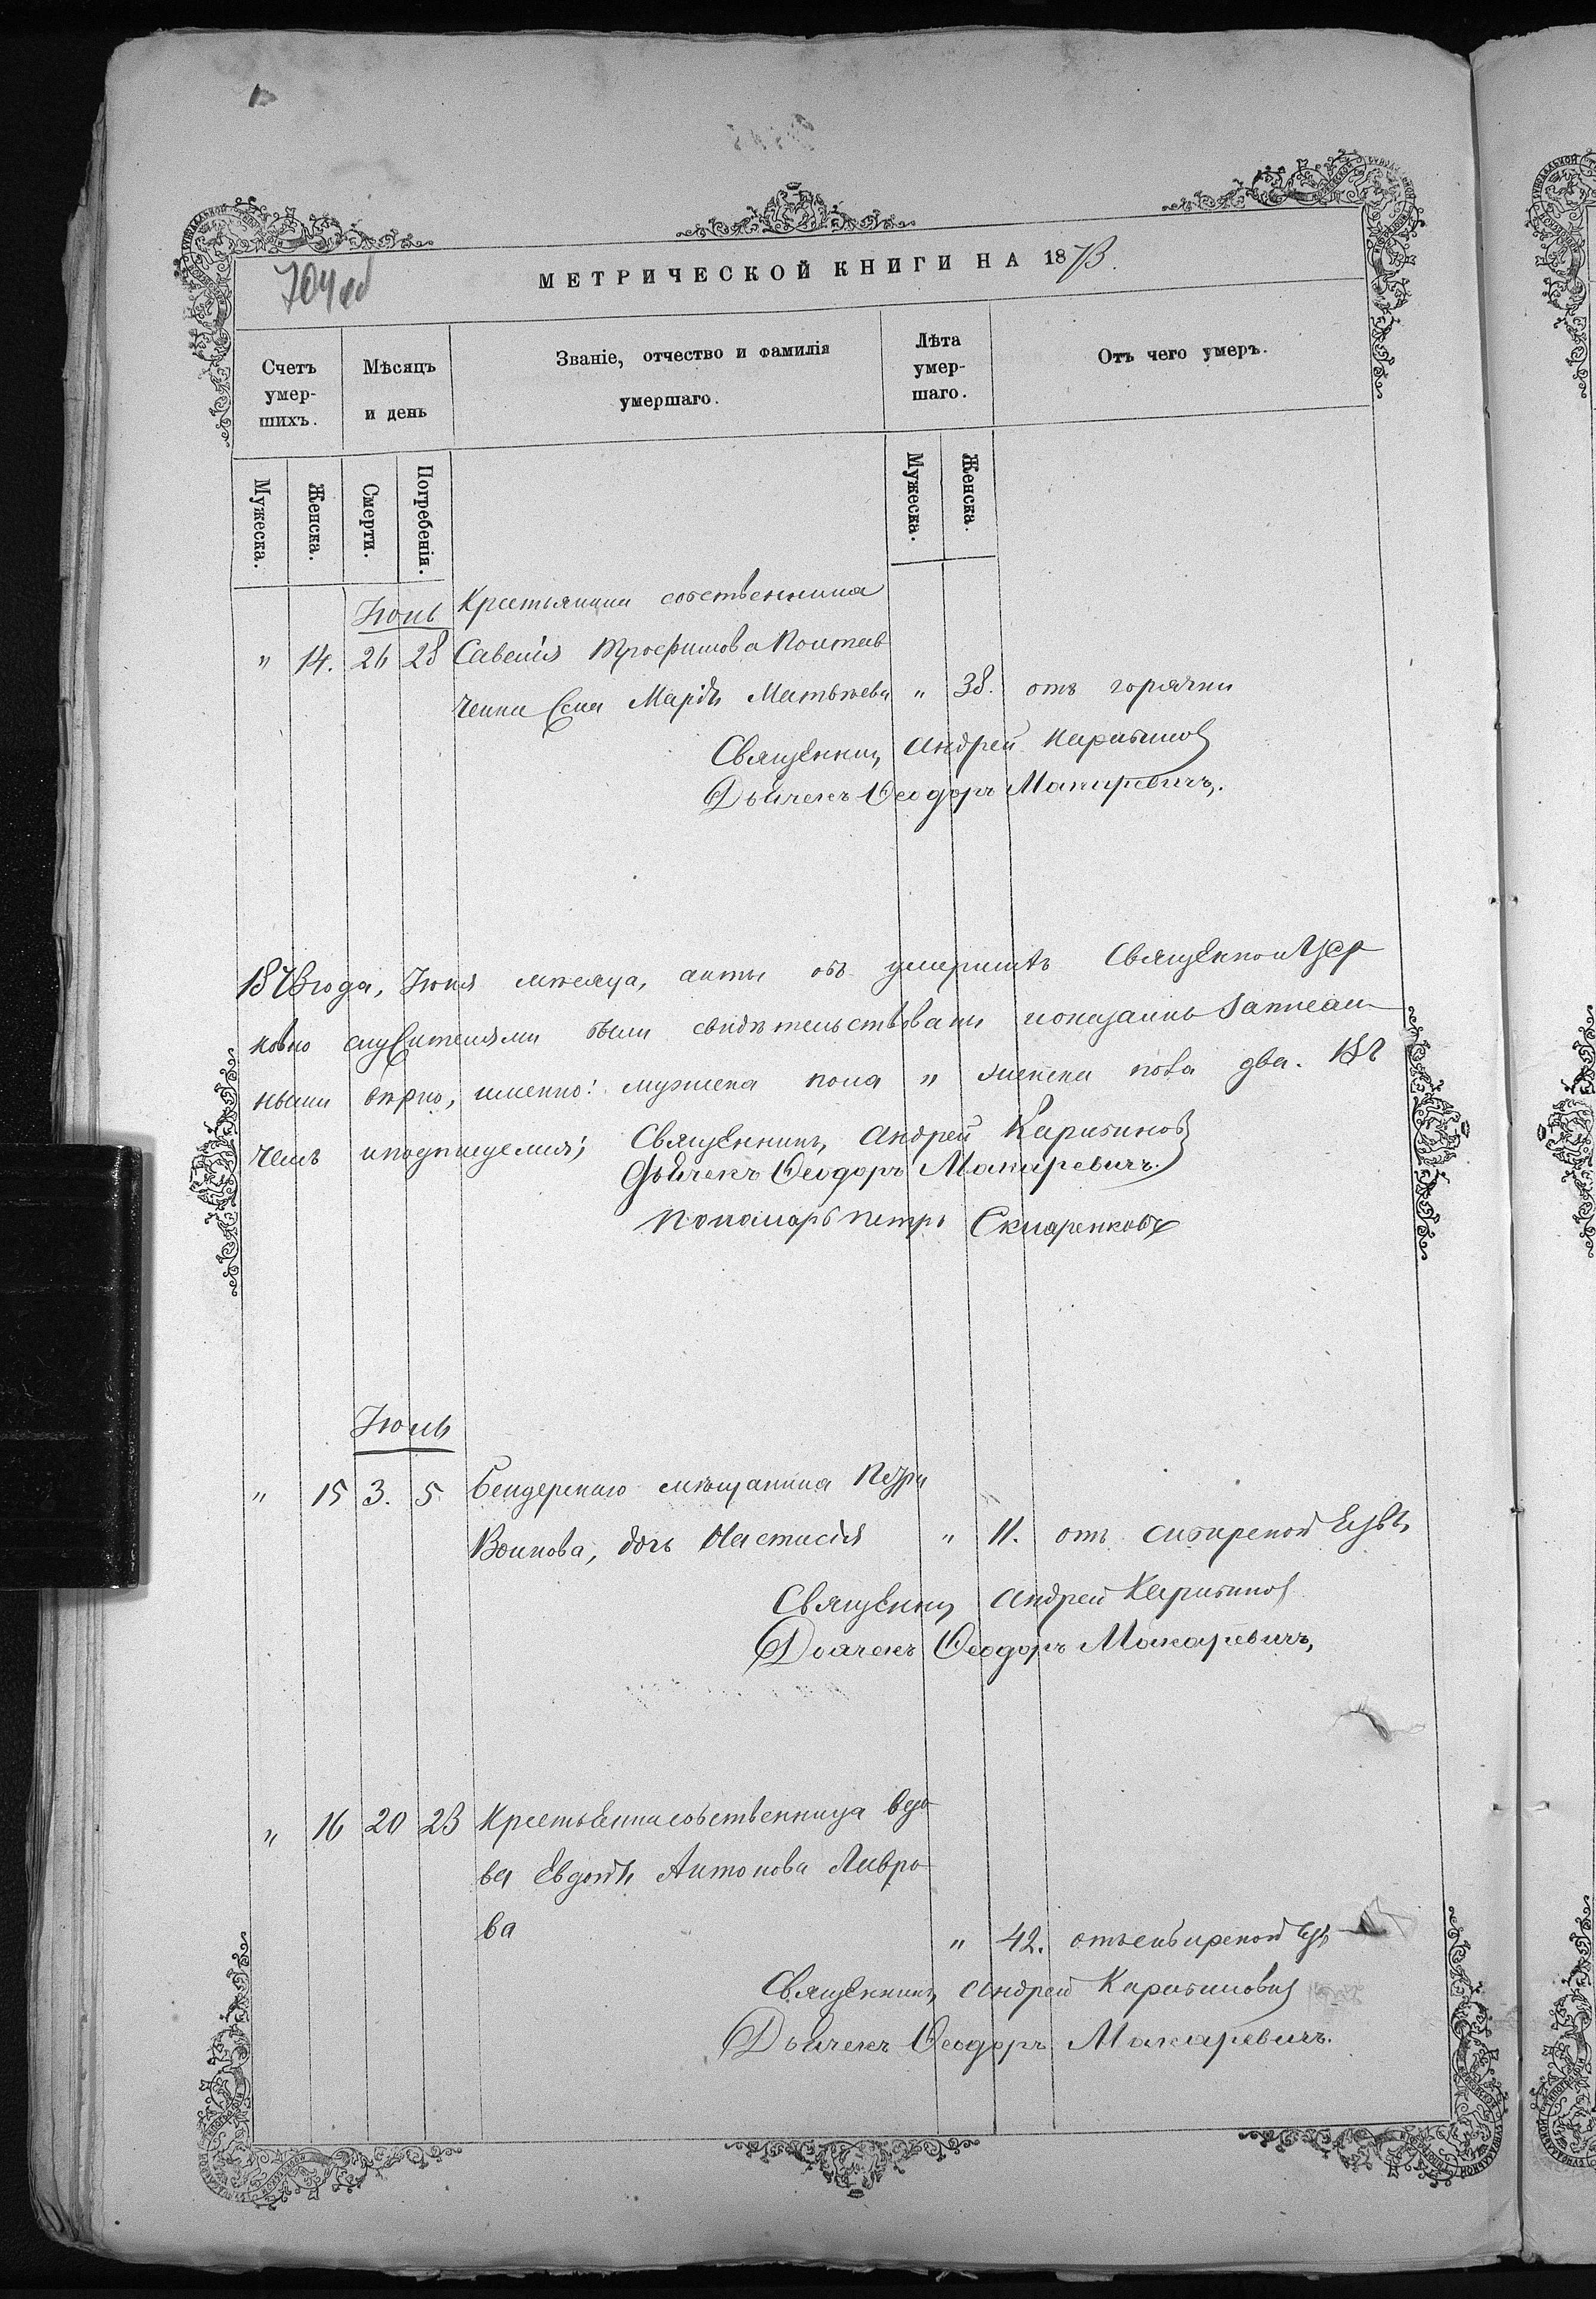 704 об
МЕТРИЧЕСКОЙ КНИГИ НА 1873.
Счетъ умер-шихъ.
Мѣсяцъ и день
Званіе, отчество и фамилія умершаго.
Лѣта умер-шаго.
Отъ чего умеръ.
Мужеска.
Женска.
Смерти.
Погребенія.
Мужеска.
Женска.
Іюнь
Крестьянина собственника
" 14. 26 28 Савелія Трофимова Полтав
ченка жена Марія Матвѣева " 38. отъ горячки
Священникъ Андрей
Дьячекъ Ѳеодоръ Макаревичъ.
1873 года, Іюня мѣсяца, акты объ умершихъ Священно и Цер
ковно служителями были свидѣтельствованы и оказались записан
ными вѣрно, именно: мужеска пола " женска пола два. Въ
чемъ и подписуемся;
Священникъ Андрей
Дьячекъ Ѳеодоръ Макаревичъ.
Пономарь Петръ Скляренковъ
Іюль
" 15 3. 5. Бендерскаго мѣщанина Петра
Волкова, дочь Настасія " 11. отъ сибирской язвы
Священникъ Андрей
Дьячекъ Ѳеодоръ Макаревичъ,
" 16 20 23 Крестьянка собственница вдо
ва Евдокія Антонова Лавро
ва
" 42. отъ сибирской язвы
Священникъ Андрей
Дьячекъ Ѳеодоръ Макаревичъ.